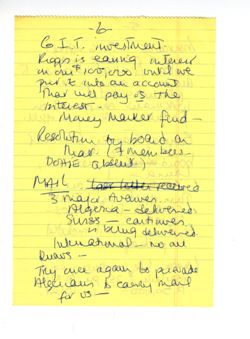 -6-
G.I.T. investment
Riggs is earning interest
on our $100,000 until we
put it into an account
that will pay off the
interest.
Money Market fund –
Resolution by board on
Mar. 1 (7 members –
DOAIE absent)
MAIL last letter received
3 major avenues
Algeria – delivered
Swiss – continues
is being delivered
International – no one
knows –
Try once again to persuade
Algerians to carry mail
for us –